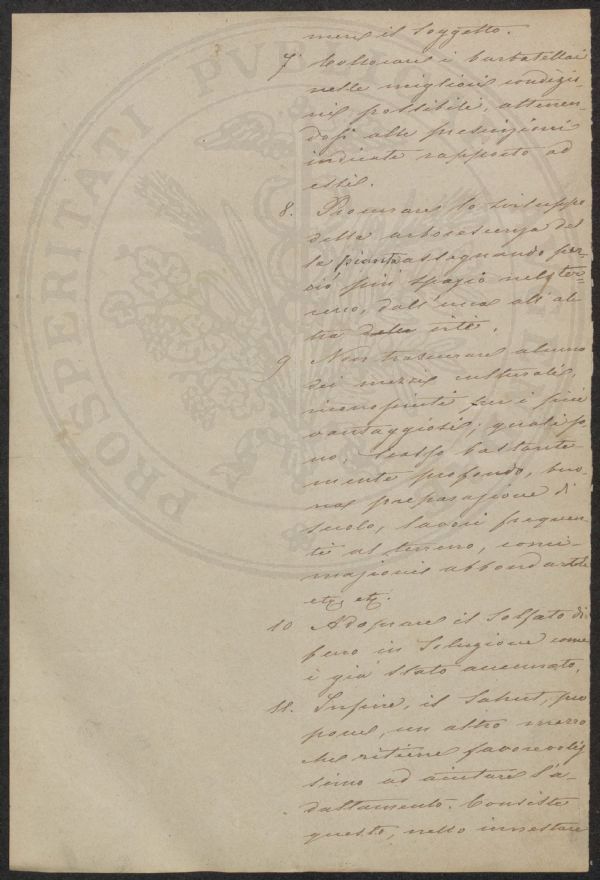 mere il soggetto.
7 Collocare i barbatellai
nelle migliori condizio-
ni possibili, attenen-
dosi alle prescrizioni
indicate rapporto ad
essi.
8. Procurare lo sviluppo
della arborescenza del
la pianta assegnando per-
ciò più spazio nel ter-
reno, dall'una all'al
tra delle viti.
9 Non trascurare alcuno
dei mezzi culturali,
riconosciuti per i più
vantaggiosi; quali so,
no, scasso bastante-
mente profondo, buo
na preparazione di
suolo, lavori frequen
ti al terreno, conci-
mazioni abbondanti
etc, etc.
10 Adoprare il solfato di
ferro in soluzione come
è già stato accennato.
11. Infine, il Sahut, pro
pone, un altro mezzo
che ritiene favorevolis
simo ad aiutare l'a-
dattamento. Consiste
questo, nello innestare
PROSPERITATI PUBLICAE